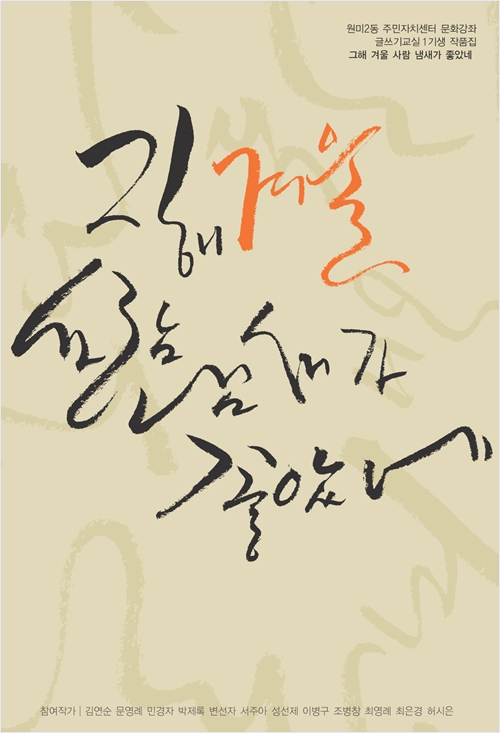 원미2동 주민자치센터 문화강좌
글쓰기교실 1기생 작품집
그해 겨울 사람 냄새가 좋았네
그해 겨울
사람 냄새가
좋았네
참여작가 | 김연순 문영례 민경자 박제록 변선자 서주아 성선제 이병구 조병창 최영례 최은경 허시은